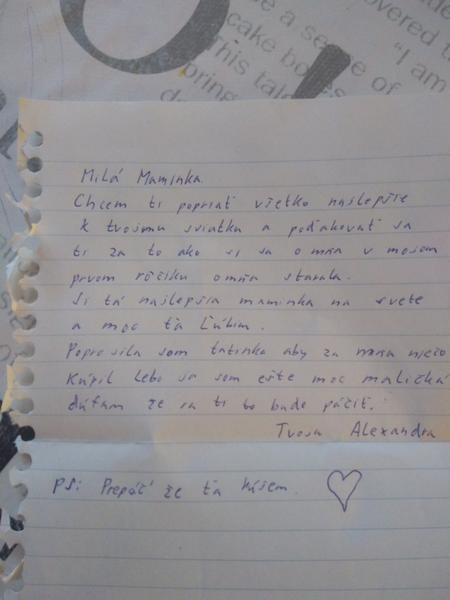 e a sense of
covered t
cake boxes
"I am
This tale
spring
Milá Maminka.
Chcem ti popriať všetko najlepšie
k tvojmu sviatku a poďakovať sa
ti za to ako si sa o mňa v mojom
prvom rôčiku o mňa starala.
Si tá najlepšia maminka na svete
a moc ťa ľúbim.
Poprosila som tatinka aby za mňa niečo
kúpil lebo ja som ešte moc maličká
dúfam že sa ti to bude páčiť.
Tvoja Alexandra
PS: Prepáč že ťa